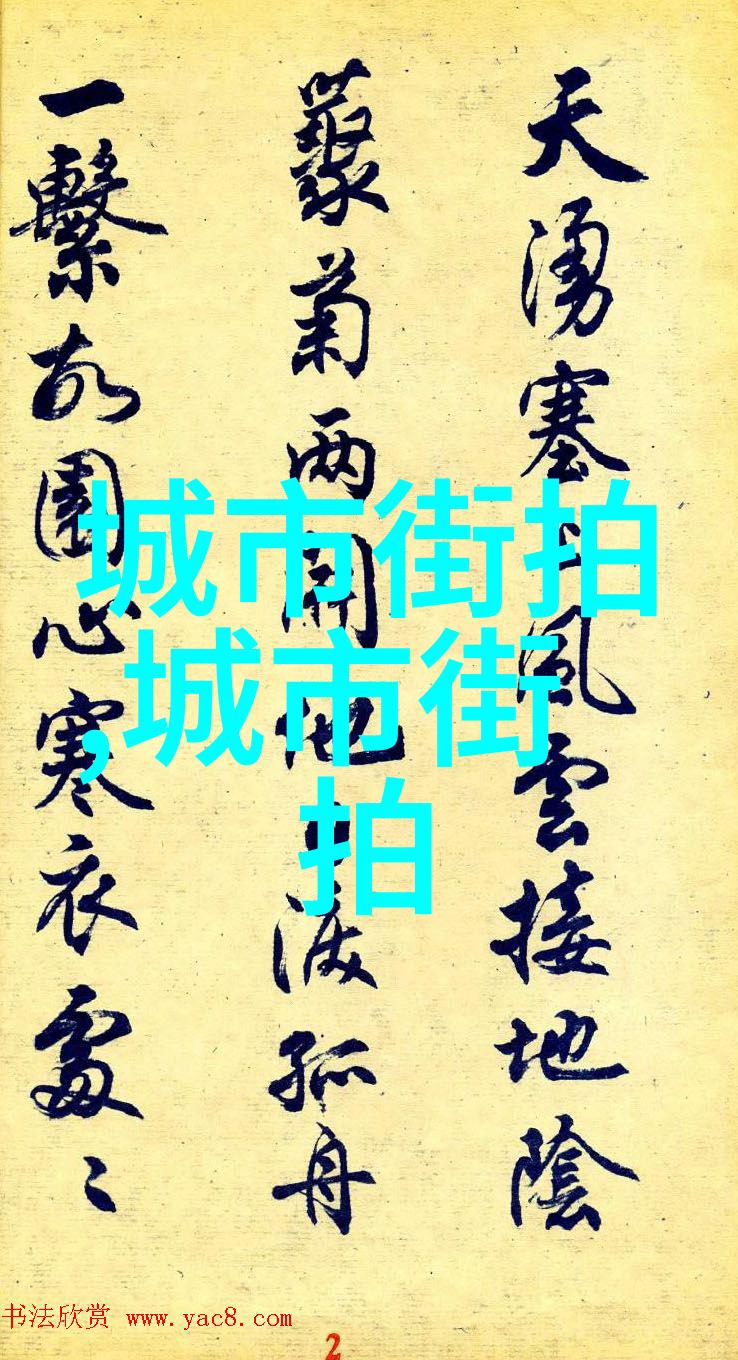 天湧塞上風雲接地陰
藂菊兩開他日淚孤舟
一繫故園心寒衣處〻
城市街拍
,城市街
拍
书法欣赏 www.yac8.com
2